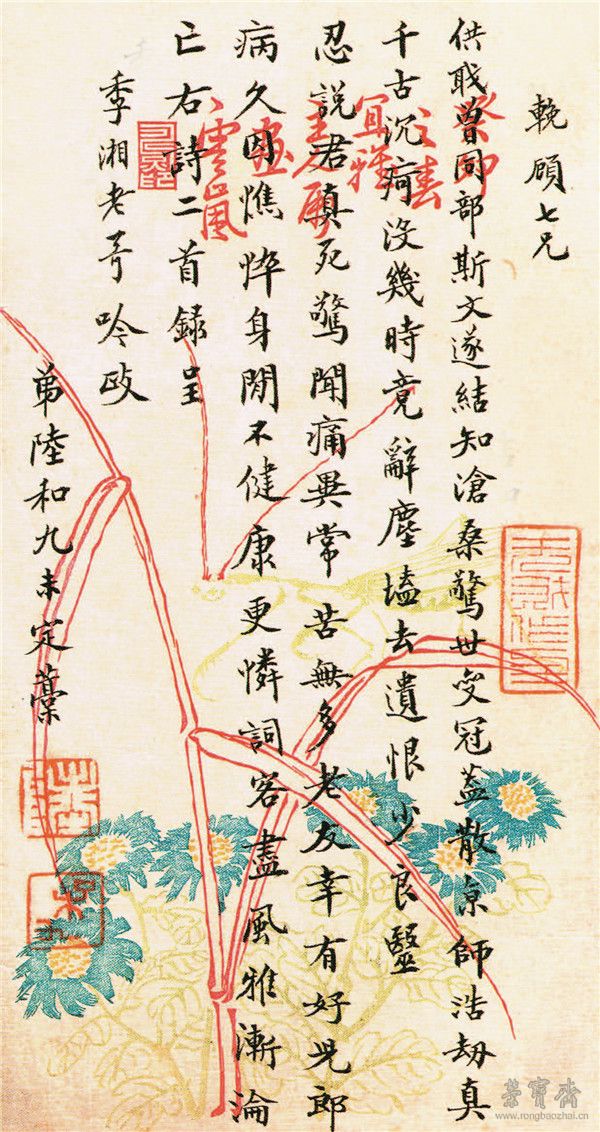 輓顧七兄
供職曾同部斯文遂結知滄桑驚世變冠蓋散京師浩劫真
千古沉疴沒幾時竟辭塵壒去遺恨少良毉
忍說君真死驚聞痛異常苦無多老友幸有好兒郎
病久因憔悴身閒不健康更憐詞客盡風雅漸淪
亡右詩二首錄呈
季湘老哥吟政
弟陸和九未定藁
癸卯
之春
寫雅
主人屬
畫
雲嵐
榮寶齋
www.rongbaozhai.cn